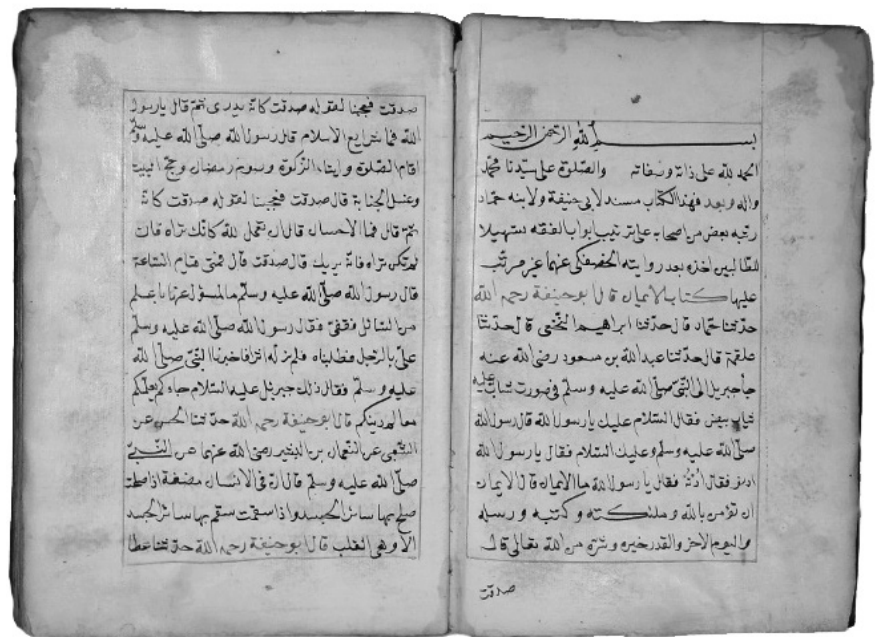 بسم الله الرحمن الرحيم
الحمد لله على ذاته وصفاته والصلوة على سيدنا محمد
واله وبعد فهذا الكتاب مسند لابي حنيفة ولابنه حماد
رتبه بعض من اصحابه على ترتيب ابواب الفقه تسهيلا
للطالبين اخذه بعد روايته الحصفكي عنهما غير مرتب
عليها كتاب الايمان قال ابو حنيفة رحمه الله
حدثنا حماد قال حدثنا ابراهيم النخعي قال حدثنا
علقمة قال حدثنا عبد الله بن مسعود رضي الله عنه
جاء جبريل الى النبي صلى الله عليه وسلم في صورت شاب عليه
ثياب بيض فقال السلام عليك يا رسول الله قال رسول الله
صلى الله عليه وسلم وعليك السلام فقال يا رسول الله
ادنو فقال ادنه فقال يا رسول الله ما الايمان قال الايمان
ان تؤمن بالله وملئكته وكتبه ورسله
واليوم الاخر والقدر خيره وشره من الله تعالى قال
صدقت
صدقت فعجبنا لقوله صدقت كانه يدرى ثم قال يا رسول
الله فما شرايع الاسلام قال رسول الله صلى الله عليه وسلم
اقام الصلوة وايتاء الزكوة وصوم رمضان وحج البيت
وغسل الجنابة قال صدقت فعجبنا لقوله صدقت كانه
ثم قال فما الاحسان قال ان تعمل لله كانك تراه فان
لم تكن تراه فانه يريك قال صدقت قال فمتى قيام الساعة
قال رسول الله صلى الله عليه وسلم ما المسؤل عنها باعلم
من السائل فقفى فقال رسول الله صلى الله عليه وسلم
على بالرجل فطلبناه فلم نر له اثرا فاخبرنا النبي صلى الله
عليه وسلم فقال ذلك جبريل عليه السلام جاءكم يعلمكم
معالم دينكم قال ابو حنيفة رحمه الله حدثنا الحسن عن
الشعبى عن النعمان بن البشير رضي الله عنهما عن النبي
صلى الله عليه وسلم قال ان في الانسان مضغة اذا صلحت
صلح بها سائر الجسد واذا سقمت سقم بها سائر الجسد
الا وهي القلب قال ابو حنيفة رحمه الله حدثنا عطا